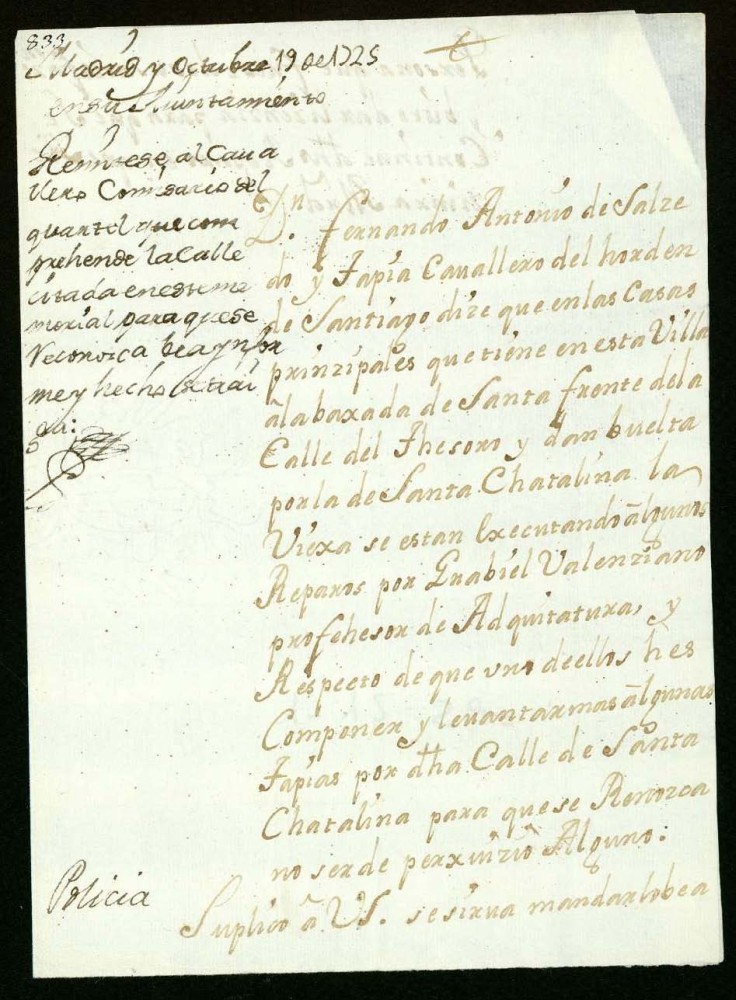 833
Madrid y Octubre 19 de 1725
en su Aiuntamiento
Remitese al Cava
llero Comisario del
quartel que com
prehende la Calle
citada en este me
morial para que se
reconozca bea ynfor
me y hecho se trai
ga:
Dn. fernando Antonio de Salze
do y Tapia Cavallero del horden
de Santiago dize que en las Casas
prinzipales que tiene en esta Villa
a la baxada de Santa frente de la
Calle del Thesoro y dan buelta
por la de Santa Chatalina la
Viexa se estan Executando algunos
Reparos por Grabiel Valenziano
profehesor de Adquitatura, y
Respecto de que uno de ellos hes
Componer y levantar mas algunas
Tapias por dha Calle de Santa
Chatalina para que se Renozca
no ser de perxuizio Alguno:
Suplico a VS. se sirva mandarlo bea
Policia